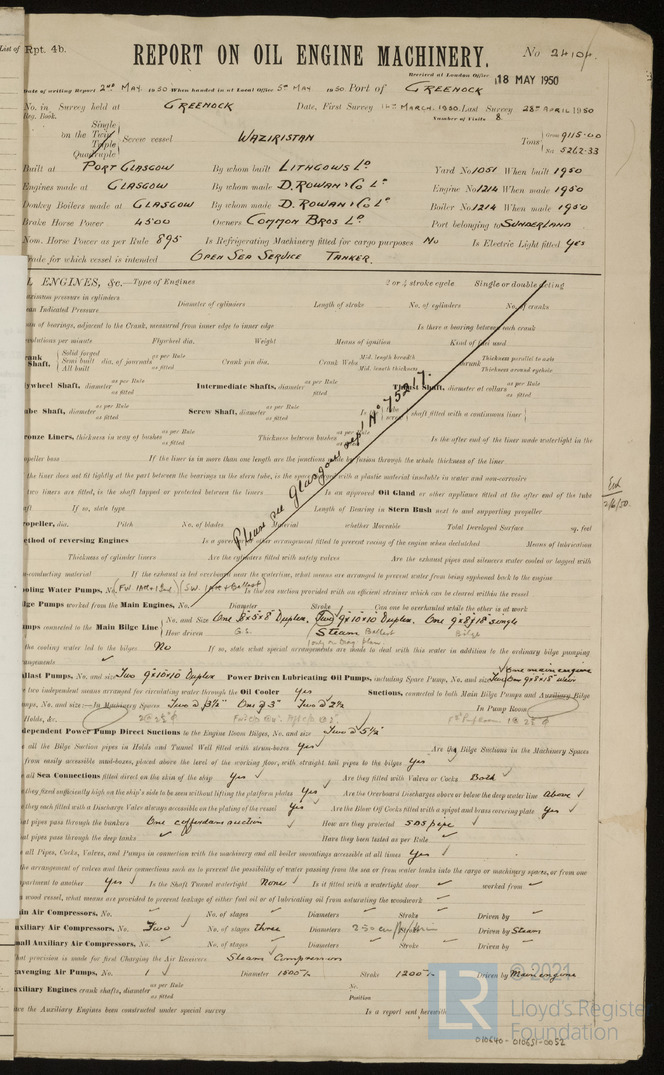 List of
Rpt. 4b.
REPORT ON OIL ENGINE MACHINERY. No 24104
Received at London Office 18 MAY 1950
Date of writing Report 2nd May 1950 When handed in at Local Office 5th May 1950 Port of GREENOCK
No. in Survey held at GREENOCK Date, First Survey 14th MARCH, 1950. Last Survey 28th APRIL 1950
Reg. Book. Number of Visits 8
Single
on the Twin Screw vessel WAZIRISTAN Tons Gross 9115.00
Triple
Quadruple Net 5262.33
Built at PORT GLASGOW By whom built LITHGOWS Ld Yard No 1051 When built 1950
Engines made at GLASGOW By whom made D. ROWAN & Co Ld Engine No 1214 When made 1950
Donkey Boilers made at GLASGOW By whom made D. ROWAN & Co Ld Boiler No 1214 When made 1950
Brake Horse Power 4500 Owners COMMON BROS Ld. Port belonging to SUNDERLAND
Nom. Horse Power as per Rule 895 Is Refrigerating Machinery fitted for cargo purposes No Is Electric Light fitted Yes
Trade for which vessel is intended OPEN SEA SERVICE TANKER.
L ENGINES, &c.—Type of Engines 2 or 4 stroke cycle Single or double acting
aximum pressure in cylinders Diameter of cylinders Length of stroke No. of cylinders No. of cranks
ean Indicated Pressure
an of bearings, adjacent to the Crank, measured from inner edge to inner edge Is there a bearing between each crank
evolutions per minute Flywheel dia. Weight Means of ignition Kind of fuel used
rank Shaft, Solid forged Semi built All built dia. of journals as per Rule as fitted Crank pin dia. Crank Webs Mid. length breadth Mid. length thickness shrunk Thickness parallel to axis Thickness around eyehole
lywheel Shaft, diameter as per Rule as fitted Intermediate Shafts, diameter as per Rule as fitted Thrust Shaft, diameter at collars as per Rule as fitted
ube Shaft, diameter as per Rule as fitted Screw Shaft, diameter as per Rule as fitted Is the tube screw shaft fitted with a continuous liner
ronze Liners, thickness in way of bushes as per Rule as fitted Thickness between bushes as per Rule as fitted Is the after end of the liner made watertight in the
opeller boss If the liner is in more than one length are the junctions made by fusion through the whole thickness of the liner
the liner does not fit tightly at the part between the bearings in the stern tube, is the space charged with a plastic material insoluble in water and non-corrosive
two liners are fitted, is the shaft lapped or protected between the liners Is an approved Oil Gland or other appliance fitted at the after end of the tube
aft If so, state type Length of Bearing in Stern Bush next to and supporting propeller
opeller, dia. Pitch No. of blades Material whether Moveable Total Developed Surface sq. feet
ethod of reversing Engines Is a governor or other arrangement fitted to prevent racing of the engine when declutched Means of lubrication
Thickness of cylinder liners Are the cylinders fitted with safety valves Are the exhaust pipes and silencers water cooled or lagged with
Please see Glasgow rep! No 75217.
n-conducting material If the exhaust is led overboard near the waterline, what means are arranged to prevent water from being syphoned back to the engine
ooling Water Pumps, No. Is the sea suction provided with an efficient strainer which can be cleared within the vessel
lge Pumps worked from the Main Engines, No. Diameter Stroke Can one be overhauled while the other is at work
umps connected to the Main Bilge Line No. and Size One 8x5x8 Duplex. Two 9x10x10 Duplex. One 9x8x18 single
How driven Steam Ballast Bilge
the cooling water led to the bilges No If so, state what special arrangements are made to deal with this water in addition to the ordinary bilge pumping
ngements
llast Pumps, No. and size Two 9x10x10 Duplex Power Driven Lubricating Oil Pumps, including Spare Pump, No. and size One main engine One 9x8x18 weir
e two independent means arranged for circulating water through the Oil Cooler Yes Suctions, connected to both Main Bilge Pumps and Auxiliary Bilge
mps, No. and size:—In Machinery Spaces Two @ 3½" One @ 3" Two @ 2½ In Pump Room
Holds, &c.
dependent Power Pump Direct Suctions to the Engine Room Bilges, No. and size Two @ 5½"
e all the Bilge Suction pipes in Holds and Tunnel Well fitted with strum-boxes Yes Are the Bilge Suctions in the Machinery Spaces
from easily accessible mud-boxes, placed above the level of the working floor, with straight tail pipes to the bilges Yes
e all Sea Connections fitted direct on the skin of the ship Yes Are they fitted with Valves or Cocks Both
e they fixed sufficiently high on the ship's side to be seen without lifting the platform plates Yes Are the Overboard Discharges above or below the deep water line Above
e they each fitted with a Discharge Valve always accessible on the plating of the vessel Yes Are the Blow Off Cocks fitted with a spigot and brass covering plate Yes
at pipes pass through the bunkers One cofferdam suction How are they protected SDS pipe
at pipes pass through the deep tanks Have they been tested as per Rule
e all Pipes, Cocks, Valves, and Pumps in connection with the machinery and all boiler mountings accessible at all times Yes
the arrangement of valves and their connections such as to prevent the possibility of water passing from the sea or from water tanks into the cargo or machinery spaces, or from one
mpartment to another Yes Is the Shaft Tunnel watertight None Is it fitted with a watertight door worked from
a wood vessel, what means are provided to prevent leakage of either fuel oil or of lubricating oil from saturating the woodwork
ain Air Compressors, No. No. of stages Diameters Stroke Driven by
uxiliary Air Compressors, No. Two No. of stages three Diameters Stroke Driven by Steam
mall Auxiliary Air Compressors, No. No. of stages Diameters Stroke Driven by
hat provision is made for first Charging the Air Receivers Steam Compressors
cavenging Air Pumps, No. 1 Diameter Stroke Driven by Main engine
uxiliary Engines crank shafts, diameter as per Rule as fitted No. Position
ave the Auxiliary Engines been constructed under special survey Is a report sent herewith
LR
© 2021
Lloyd's Register
Foundation
010640-010651-0052